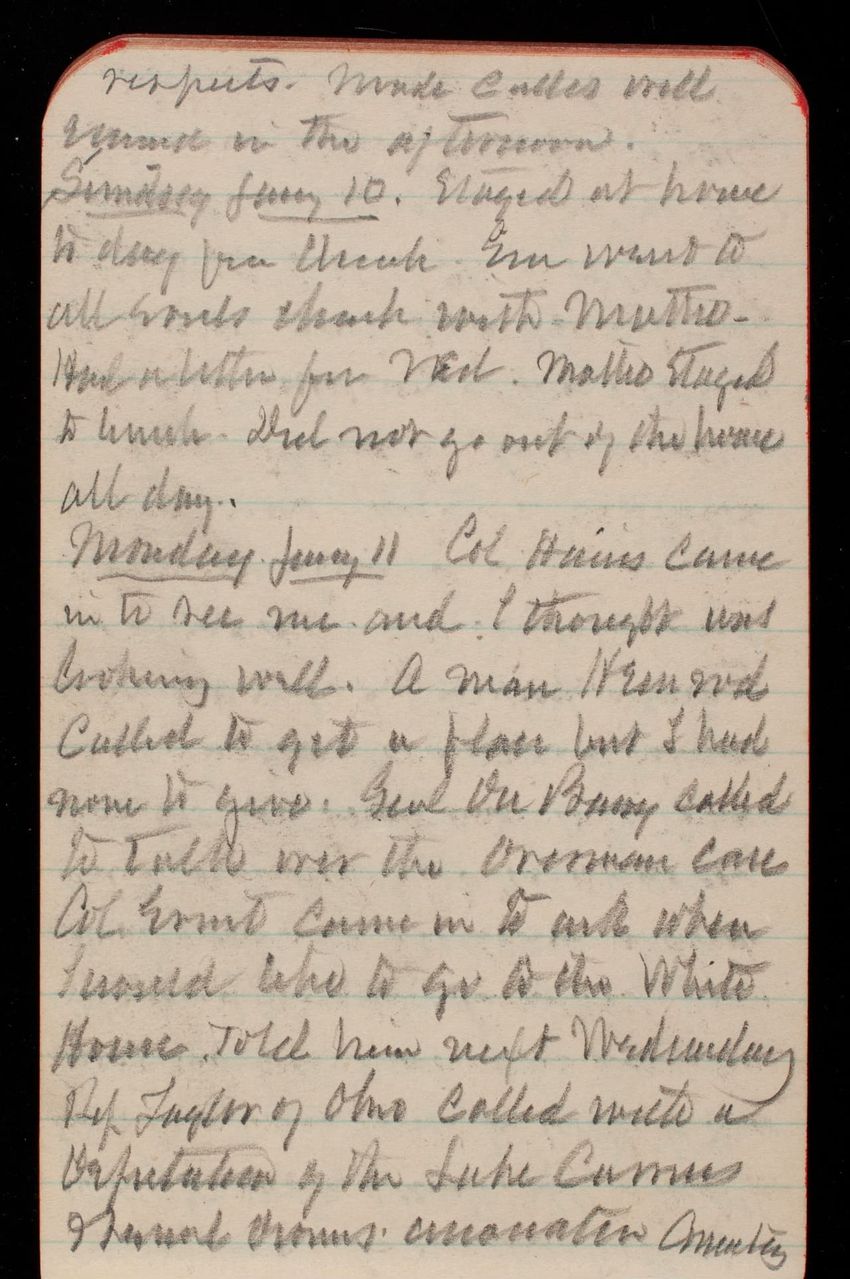 respects. Made calls with
Emma in the afternoon.
Sunday Jany 10. Staged at home
to day from Church. Em went to
all Souls church with Mattie-
Had a letter from Ned. Mattie Staged
to lunch. Did not go out of the house
all day.
Monday Jany 11 Col Hains came
in to see me and I thought was
looking well. A man
Called to get a place but I had
none to give. Genl Du Barry called
to talk over the Overman case
Col Ernst came in to ask when
I would like to go to the White
House. Told him next Wednesday
Rep Taylor of Ohio called with a
Deputation of the Lake Carriers